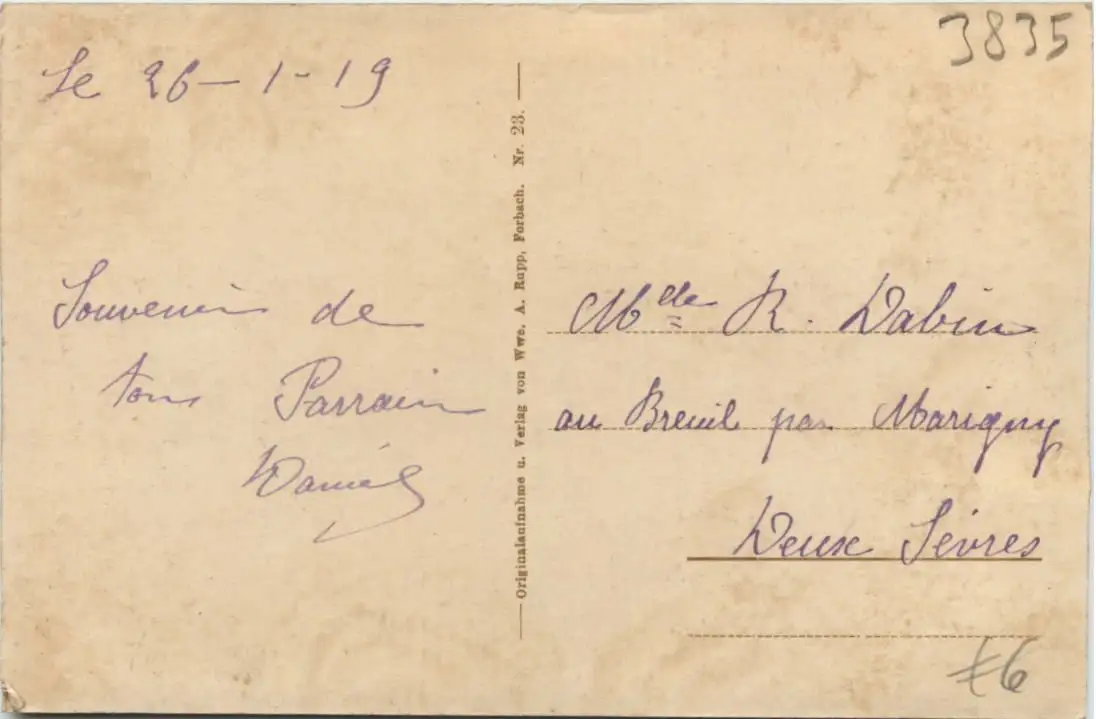 Le 26 - 1 - 19
Souvenir de
ton Parrain
Daniel
Originalaufnahme u. Verlag von Wwe. A. Rupp, Forbach. Nr. 23.
3835
Mdelle R. Dabin
au Breuil par Marigny
Deux Sèvres
€6